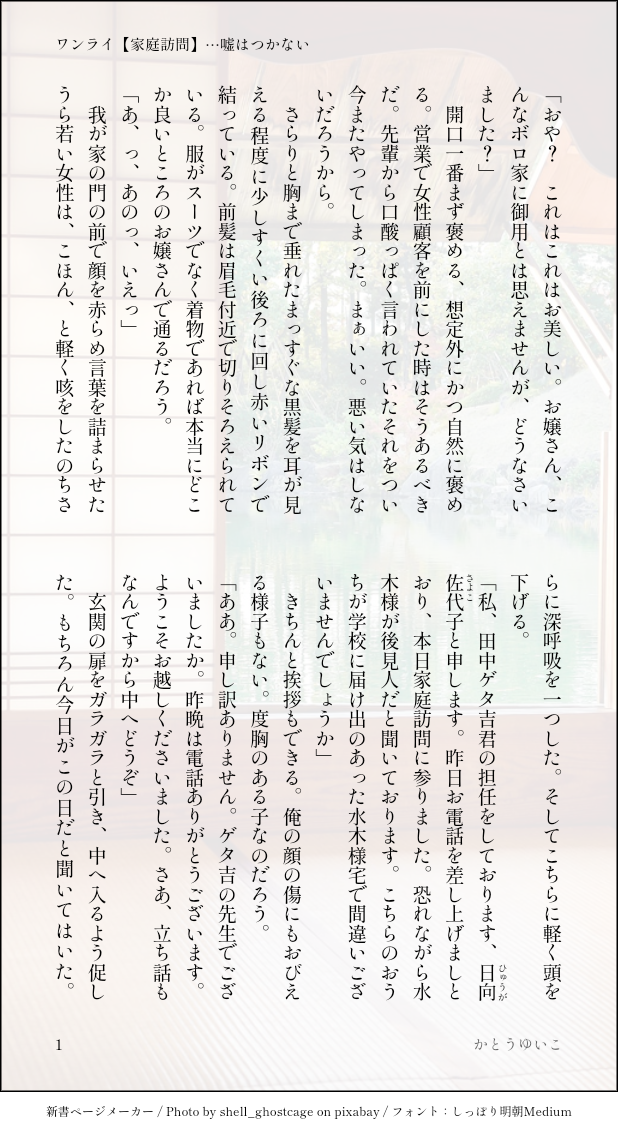 ワンライ【家庭訪問】…嘘はつかない
「おや？　これはこれはお美しい。お嬢さん、こ
んなボロ家に御用とは思えませんが、どうなさい
ました？」
　開口一番まず褒める、想定外にかつ自然に褒め
る。営業で女性顧客を前にした時はそうあるべき
だ。先輩から口酸っぱく言われていたそれをつい
今またやってしまった。まぁいい。悪い気はしな
いだろうから。
　さらりと胸まで垂れたまっすぐな黒髪を耳が見
える程度に少しすくい後ろに回し赤いリボンで
結っている。前髪は眉毛付近で切りそろえられて
いる。服がスーツでなく着物であれば本当にどこ
か良いところのお嬢さんで通るだろう。
「あ、っ、あのっ、いえっ」
　我が家の門の前で顔を赤らめ言葉を詰まらせた
うら若い女性は、こほん、と軽く咳をしたのちさ
らに深呼吸を一つした。そしてこちらに軽く頭を
下げる。
「私、田中ゲタ吉君の担任をしております、日向
ひゅうが
佐代子と申します。昨日お電話を差し上げましと
さよこ
おり、本日家庭訪問に参りました。恐れながら水
木様が後見人だと聞いております。こちらのおう
ちが学校に届け出のあった水木様宅で間違いござ
いませんでしょうか」
　きちんと挨拶もできる。俺の顔の傷にもおびえ
る様子もない。度胸のある子なのだろう。
「ああ。申し訳ありません。ゲタ吉の先生でござ
いましたか。昨晩は電話ありがとうございます。
ようこそお越しくださいました。さあ、立ち話も
なんですから中へどうぞ」
　玄関の扉をガラガラと引き、中へ入るよう促し
た。もちろん今日がこの日だと聞いてはいた。
1
かとうゆいこ
新書ページメーカー / Photo by shell_ghostcage on pixabay / フォント：しっぽり明朝Medium